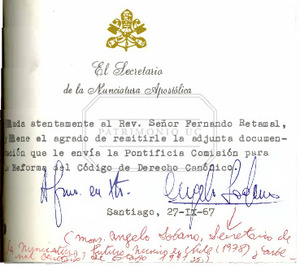 El Secretario
de la Nunciatura Apostólica
atentamente al Rev. Señor Fernando Retamal,
tiene el agrado de remitirle la adjunta documen-
ción que le envía la Pontificia Comisión para
Reforma del Código de Derecho Canónico.
PATRIMONIO UC
Angelo Sodano
Santiago, 27-IX-67
(Mons. Angelo Sodano, Secretario de
la Nunciatura, Nuncio en Chile (1978)